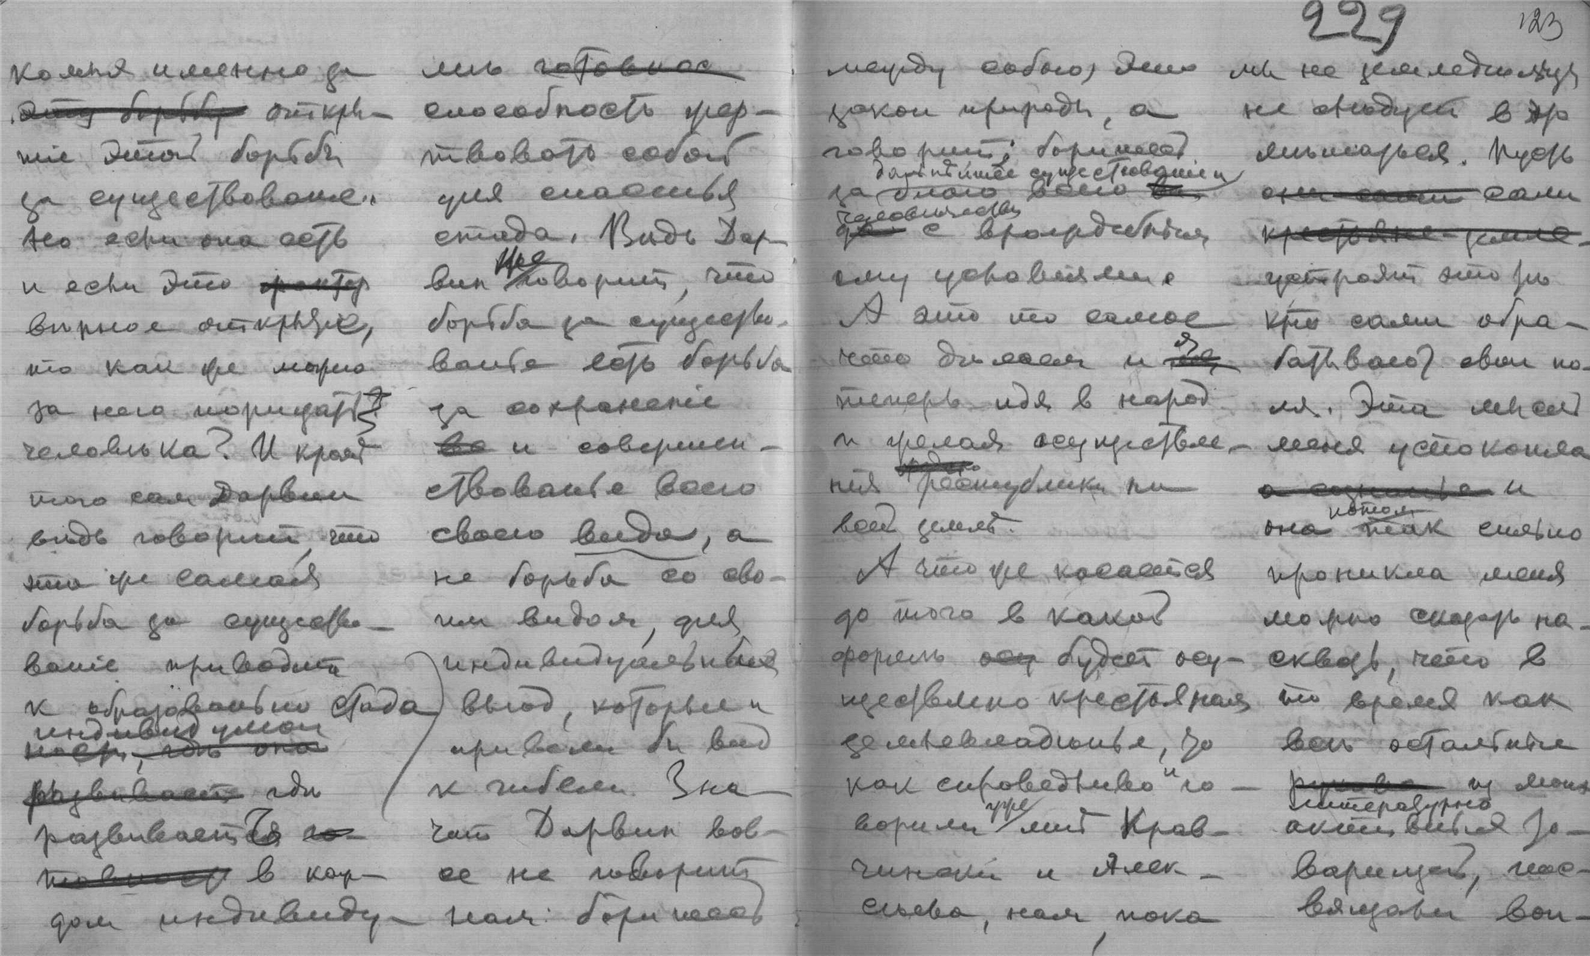 229
123
комья именно за
эту борьбу откры-
тіе этой борьбы
за существованіе.
Но если она есть
и если это фактор
вѣрное открытіе,
то как же можно
за него порицать
человѣка? И кромѣ
того сам Дарвин
вѣдь говорит, что
эта же самая
борьба за существо-
ваніе приводит
к образованью стада
индивидуумов
ность, гдѣ она
развивает гдѣ
развивается го-
товность в каж-
дом индивиду-
умѣ готовнос
способность жер-
твовать собой
для спасенья
стада. Вѣдь Дар-
вин же говорит, что
борьба за существо-
ванье есть борьба
за сохраненіе
и совершен-
ствованье всего
своего вида, а
не борьба со сво-
им видом, для
индивидуальных
выгод, которые и
привели бы вид
к гибели. Зна-
чит Дарвин вов-
се не говорит
нам: боритесь
между собою, это
закон природы, а
говорит: боритесь
дальнѣйшее существованіе
за благо всего
человѣчества
с враждебными
ему условіями.
А это то самое
что дѣлаем и я
теперь идя в народ
и желая осуществле-
нія республики на
всей землѣ.
А что же касается
до того в какой
формѣ будет осу-
ществлено крестьянам
землевладѣнье, то
как справедливо и го-
ворили уже мнѣ Крав-
чинскій и Алек-
сѣева, нам, пока
мы не земледѣльцы
не слѣдует в это
вмѣшиваться. Пусть
они сами сами
крестьяне-земле-
устроят это тѣ
кто сами обра-
батывают свои по-
ля. Эта мысль
меня успокоила
а сознанье и
она потом так сильно
проникла меня
можно сказать на-
сквозь, что в
то время как
всѣ остальные
из моих
литературно
активных то-
варищей, пос-
вящали воп-